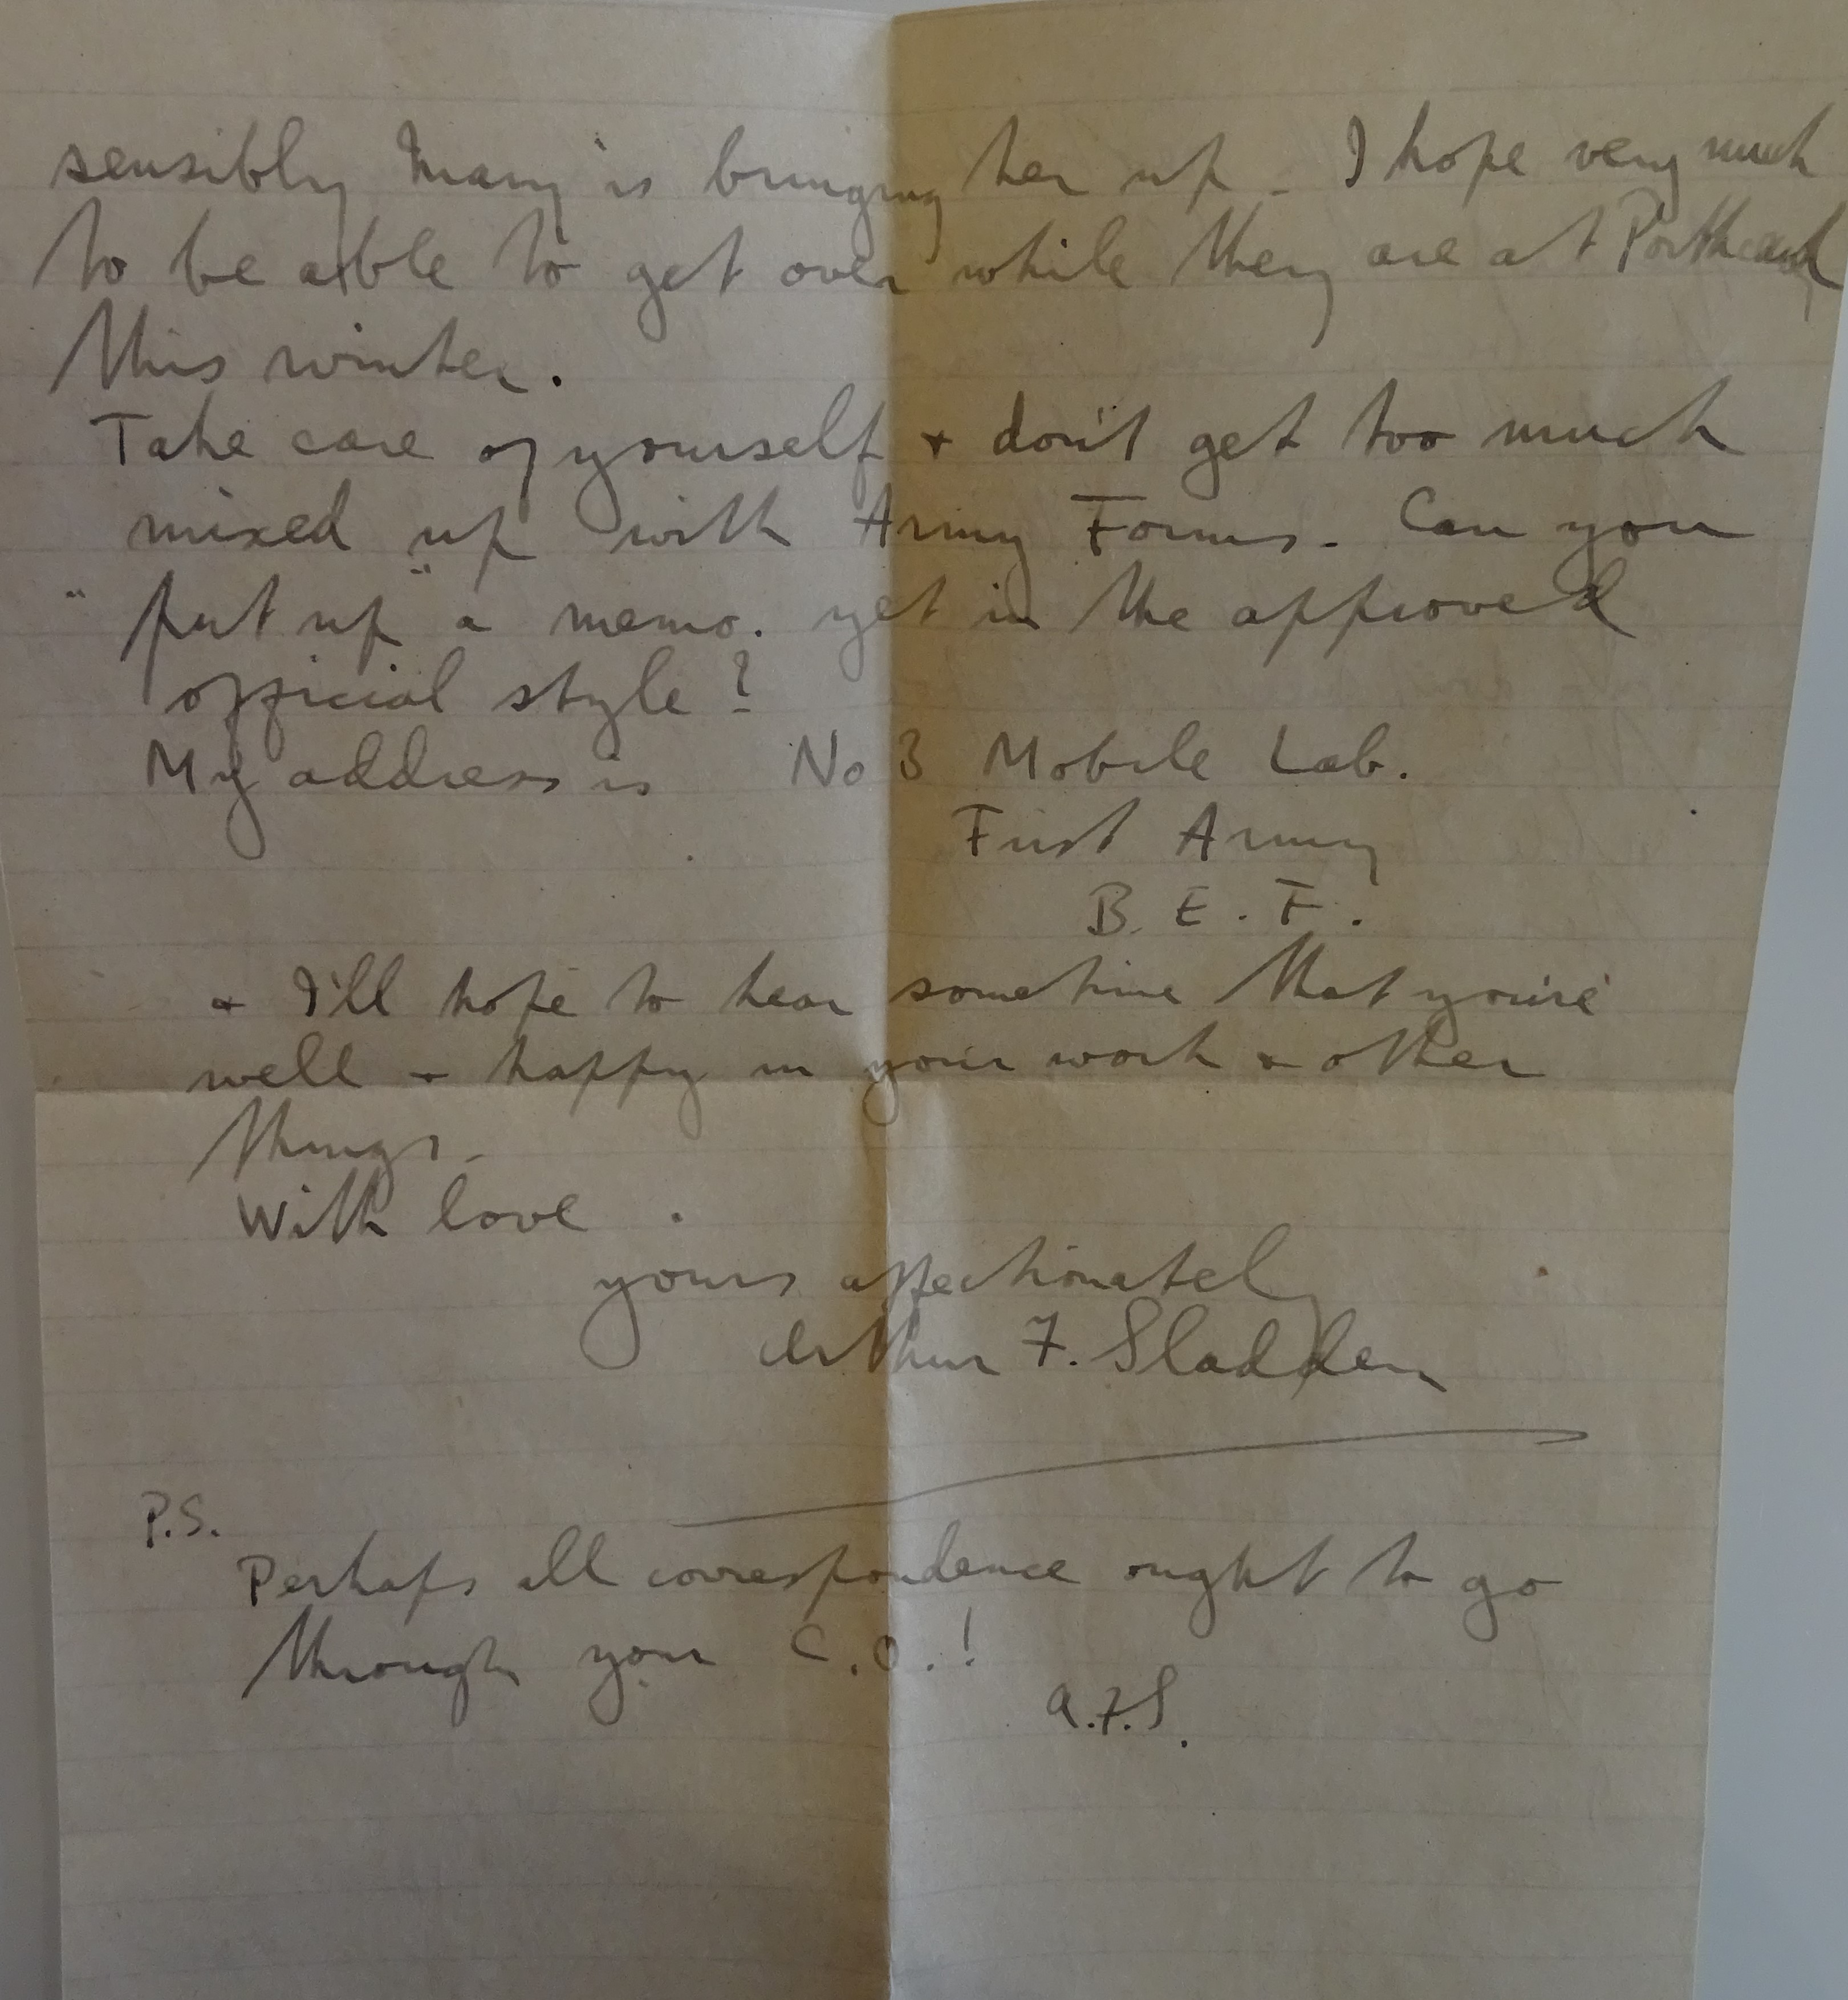 sensibly Mary is bringing her up - I hope very much
to be able to get over while they are at Porthcawl
this winter.
Take care of yourself & don't get too much
mixed up with Army Forms. Can you
"put up" a memo. yet in the approved
official style?
My address is No 3 Mobile Lab.
First Army
B.E.F.
& I'll hope to hear sometime that you're
well & happy in your work & other
things.
With love.
yours affectionately
Arthur F. Sladden
P.S.
Perhaps all correspondence ought to go
through your C.O.!
A.F.S.